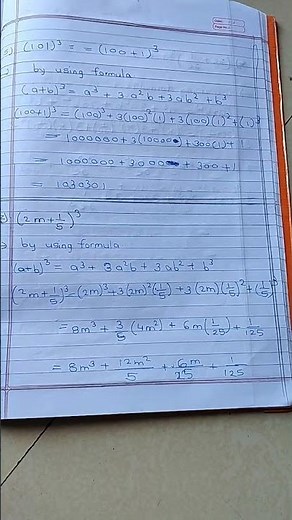 (101)³ = = (100+1)³
by using formula
(a+b)³ = a³ + 3a²b + 3ab² + b³
(100+1)³ = (100)³ + 3(100)²(1) + 3(100)(1)² + (1)³
= 1000000 + 3(10000) + 300(1) + 1
= 1000000 + 30000 + 300 + 1
= 1030301
(2m+1/5)³
by using formula
(a+b)³ = a³ + 3a²b + 3ab² + b³
(2m+1/5)³ = (2m)³ + 3(2m)²(1/5) + 3(2m)(1/5)² + (1/5)³
= 8m³ + 3/5 (4m²) + 6m(1/25) + 1/125
= 8m³ + 12m²/5 + 6m/25 + 1/125